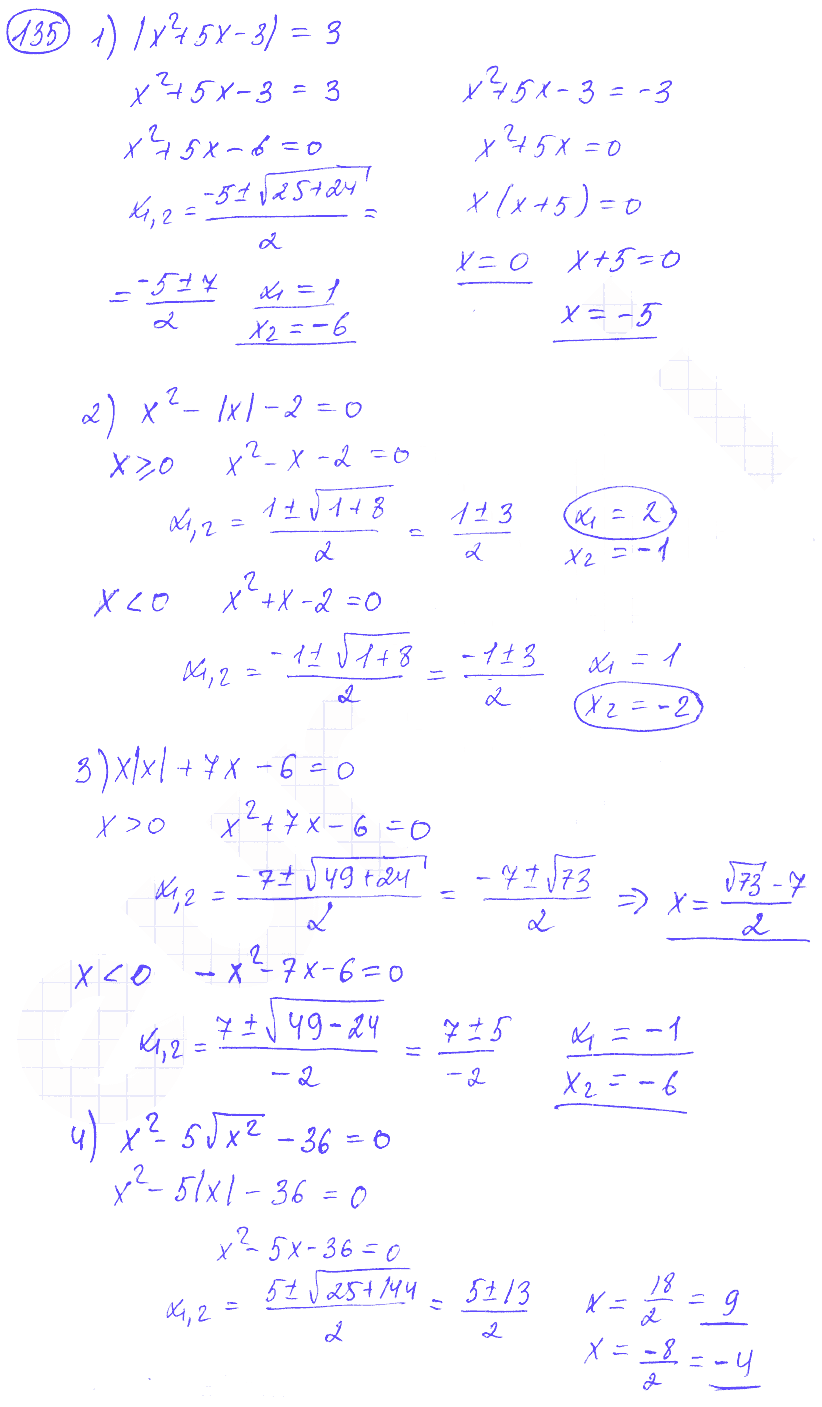 135 1) |x²+5x-3| = 3
x²+5x-3 = 3
x²+5x-6=0
x₁,₂ = (-5±√(25+24))/2 =
= (-5±7)/2 x₁ = 1
x₂ = -6
x²+5x-3 = -3
x²+5x=0
x(x+5)=0
x=0 x+5=0
x=-5
2) x²-|x|-2=0
x≥0 x²-x-2=0
x₁,₂ = (1±√(1+8))/2 = (1±3)/2 x₁ = 2
x₂ = -1
x<0 x²+x-2=0
x₁,₂ = (-1±√(1+8))/2 = (-1±3)/2 x₁ = 1
x₂ = -2
3) x|x|+7x-6=0
x>0 x²+7x-6=0
x₁,₂ = (-7±√(49+24))/2 = (-7±√73)/2 ⇒ x = (√73-7)/2
x<0 -x²-7x-6=0
x₁,₂ = (7±√(49-24))/-2 = (7±5)/-2 x₁ = -1
x₂ = -6
4) x²-5√(x²)-36=0
x²-5|x|-36=0
x²-5x-36=0
x₁,₂ = (5±√(25+144))/2 = (5±13)/2 x = 18/2 = 9
x = -8/2 = -4